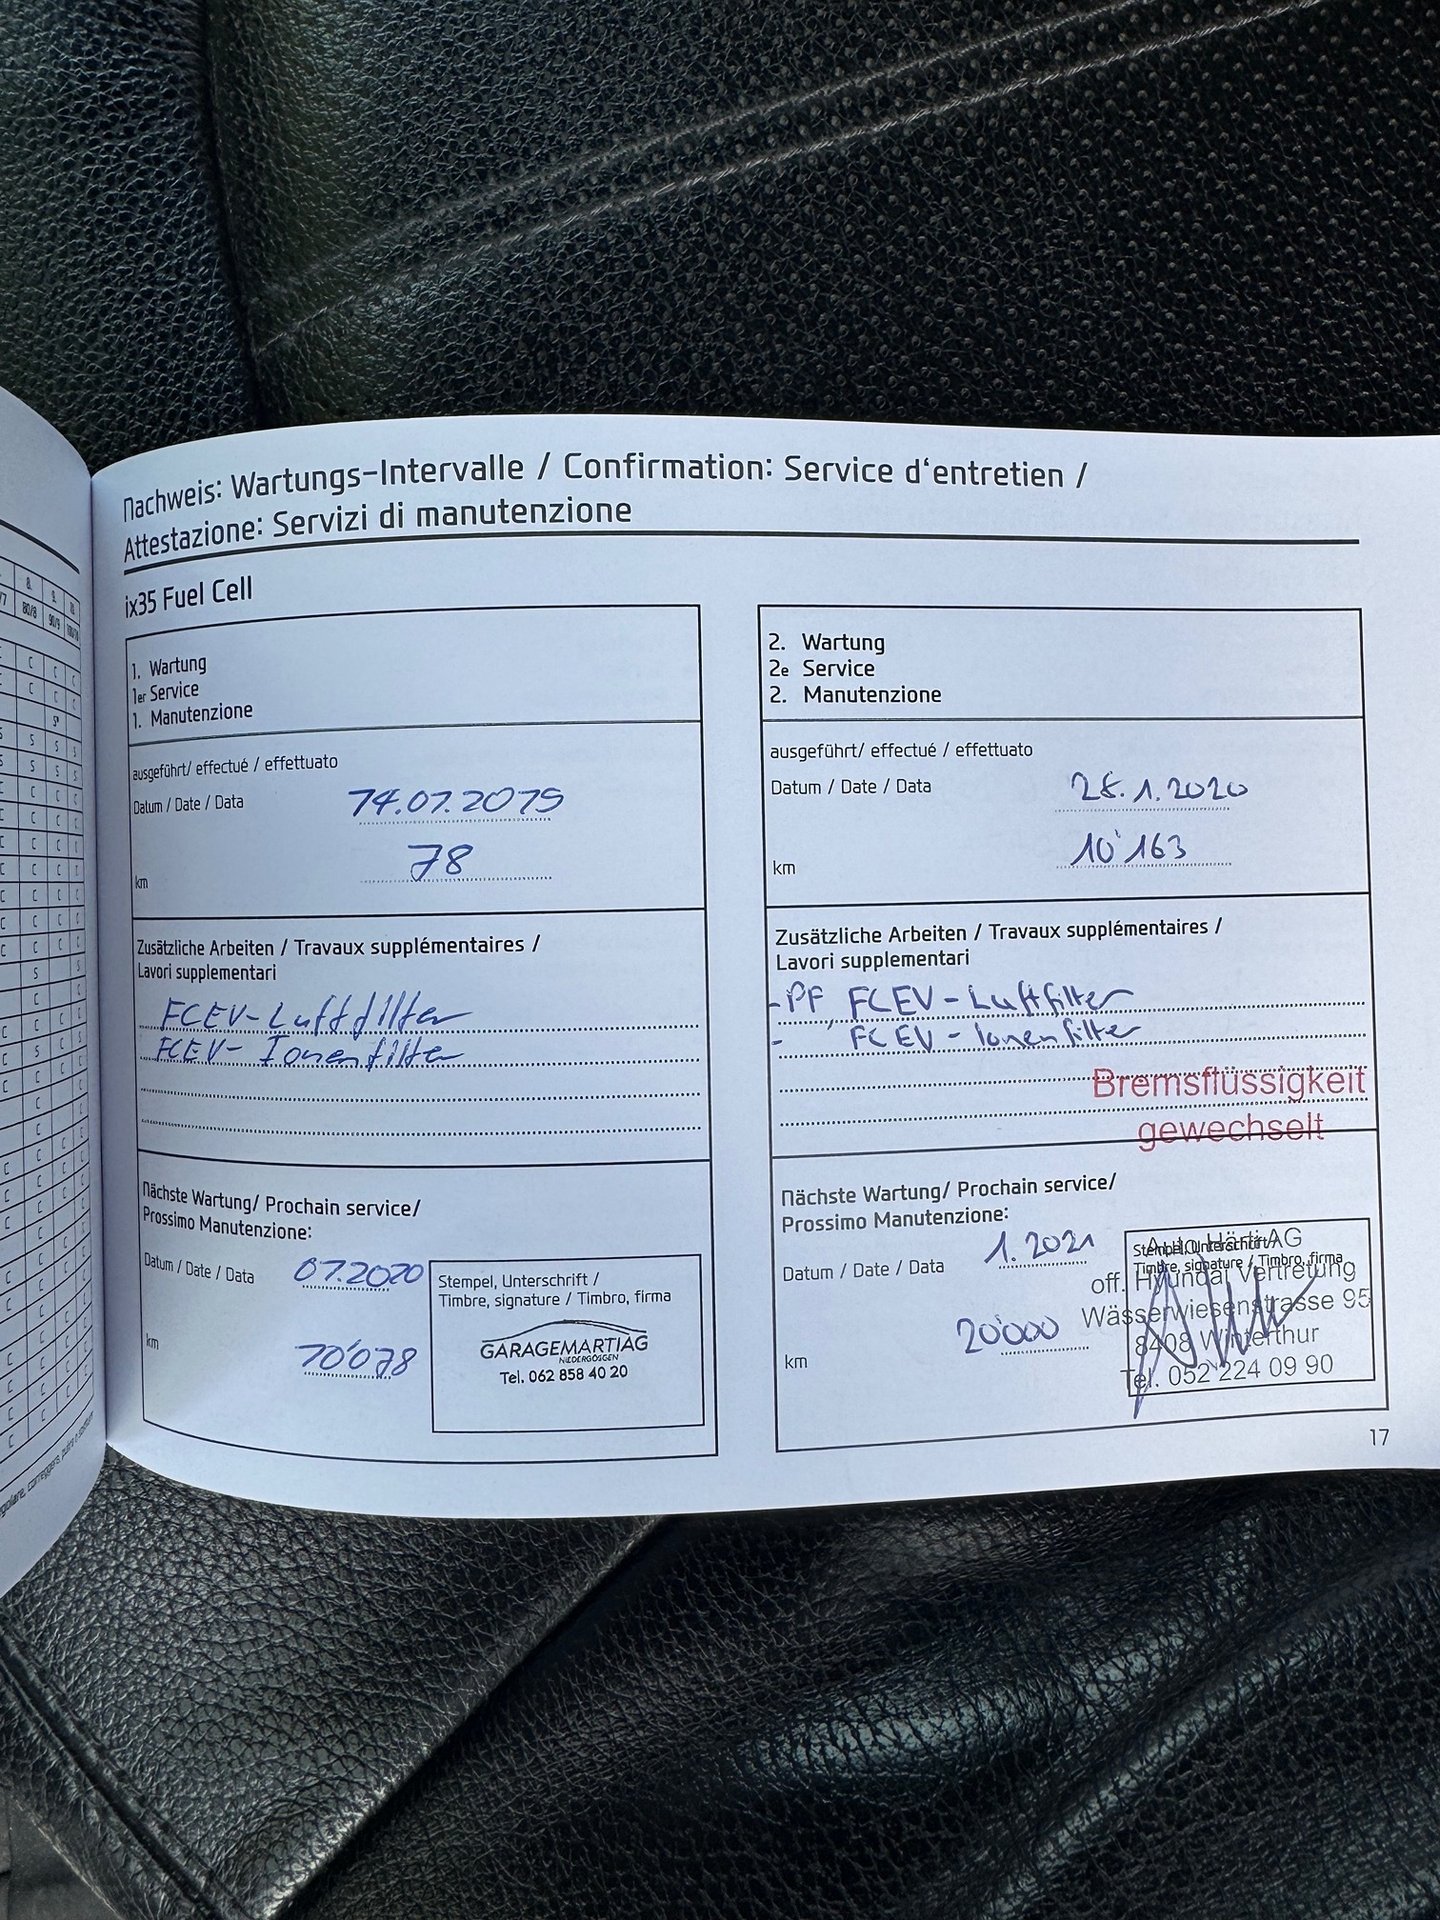 Nachweis: Wartungs-Intervalle / Confirmation: Service d'entretien /
Attestazione: Servizi di manutenzione
ix35 Fuel Cell
1. Wartung
1er Service
1. Manutenzione
ausgeführt/ effectué / effettuato
Datum / Date / Data 14.07.2019
km 78
Zusätzliche Arbeiten / Travaux supplémentaires /
Lavori supplementari
FCEV-Luftfilter
FCEV-Ionenfilter
Nächste Wartung/ Prochain service/
Prossimo Manutenzione:
Datum / Date / Data 07.2020
km 10'078
Stempel, Unterschrift /
Timbre, signature / Timbro, firma
GARAGEMARTIAG
NIEDERGÖSGEN
Tel. 062 858 40 20
2. Wartung
2e Service
2. Manutenzione
ausgeführt/ effectué / effettuato
Datum / Date / Data 28.1.2020
km 10'163
Zusätzliche Arbeiten / Travaux supplémentaires /
Lavori supplementari
-PF, FCEV-Luftfilter
- FCEV-Ionenfilter
Bremsflüssigkeit
gewechselt
Nächste Wartung/ Prochain service/
Prossimo Manutenzione:
Datum / Date / Data 1.2021
km 20'000
Stempel, Unterschrift /
Timbre, signature / Timbro, firma
Auto Härti AG
off. Hyundai Vertretung
Wässerwiesenstrasse 95
8408 Winterthur
Tel. 052 224 09 90
17
8. 9.
80/8 90/9